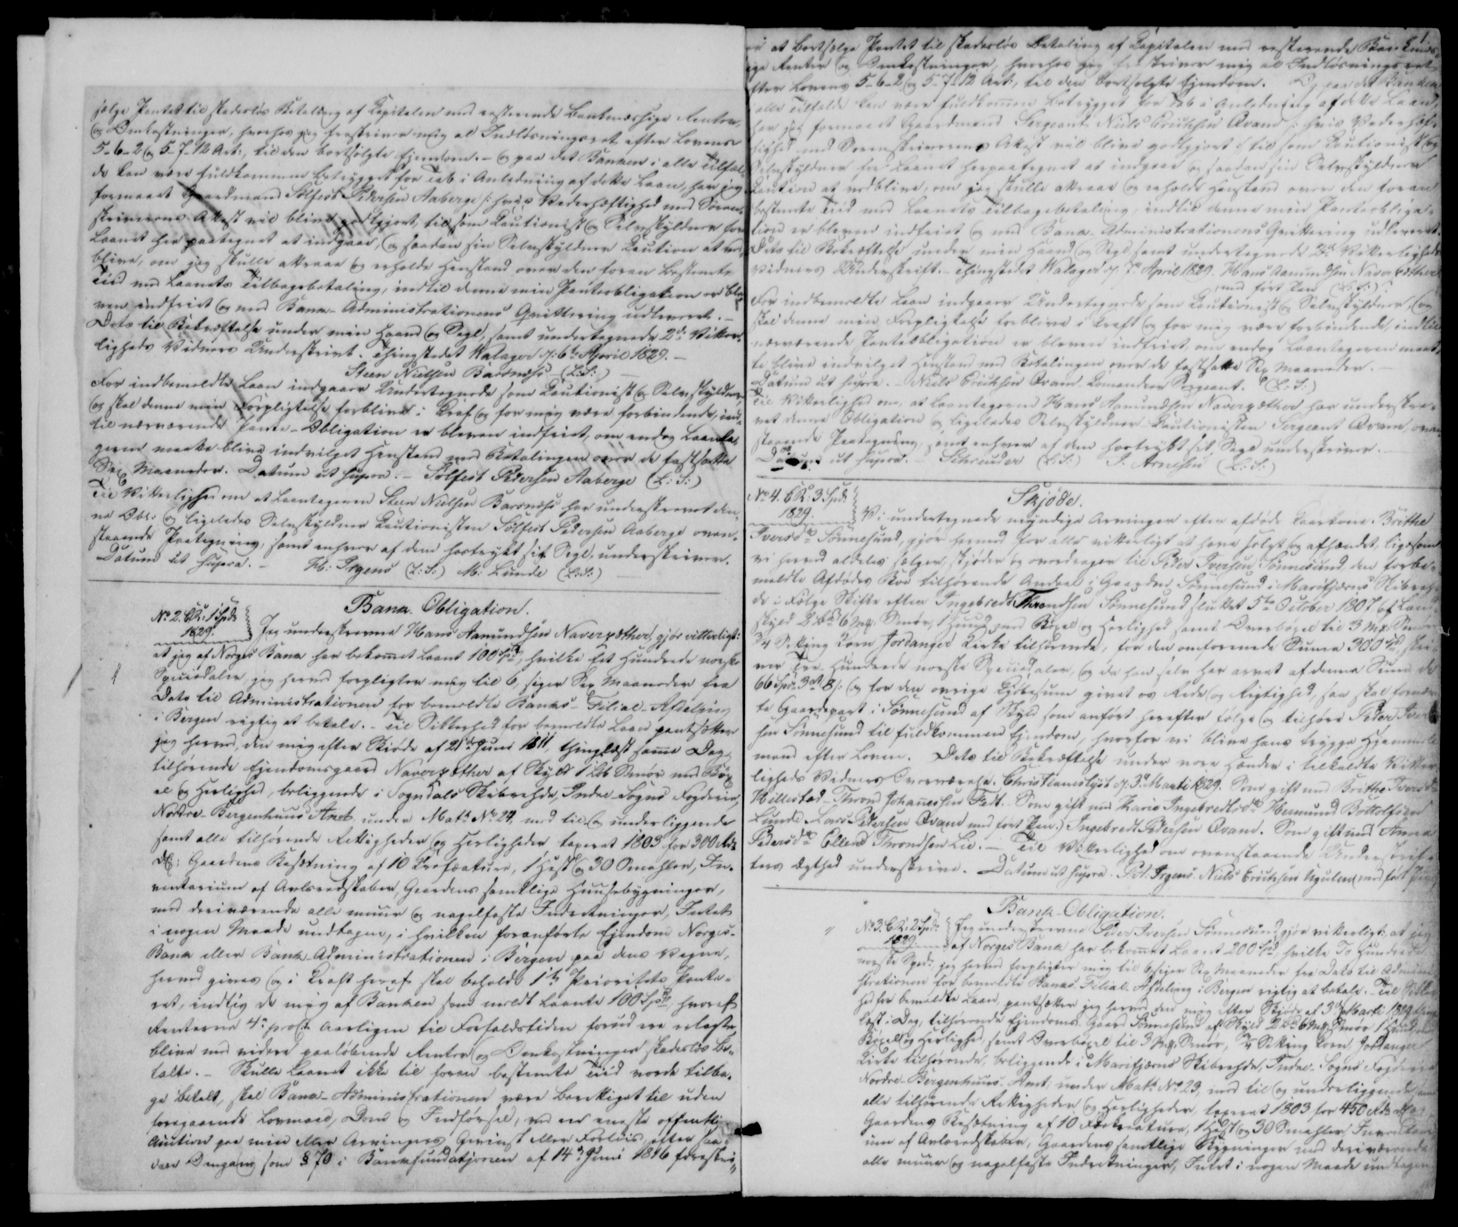 sælge Pantet til skadesløs Betaling af Capitalen med resterende Lovmæssige Renter,
og Omkostninger, hvorhos jeg frasskriver mig al Indløsningsret efter Lovens
5-6-2 og 5-7-12 Art:, til den bortsolgte Ejendom. - Og paa det Banken i alle Tilfæl-
de kan være fuldkommen betrygget for Tab i Anledning af dette Laan, har jeg
formaaet Gaardmand Sølfest Pedersen Aaberge /: hvis Vederhæftighed med Soren-
skriverens Attest vil blive godtgjort, til som Cautionist og Selvskyldner for
Laanet her paategnet at indgaae, og saadan sin Selvskyldner Caution at ved
blive, om jeg skulle attraae og erholde Henstand over den foran bestemte
Tiid med Laanets Tilbagebetaling, indtil denne min Pantobligation er ble-
ven indfriet og med Bank-Administrationens Qvittering udleveret. -
Dets til Bekræftelse under min Haand og Segl, samt undertegnede 2de Vitter-
ligheds Vidners Underskrivt. Thingstedet Walager d: 6te April 1829. -
Steen Nielsen Barsnæs (L:S:) -
For indbemeldte Laan indgaaer Undertegnede som Cautionist og Selvskyldner,
og skal denne min Forpligtelse forblive i Kraf og for mig være forbindende, ind-
til nærværende Pante-Obligation er bleven indfriet, om endog Laanta-
geren maatte blive indvilget Henstand med Betalingen over de fastsatte
Sex Maaneder. Datum ut supra. - Sølfest Pedersen Aaberge (L:S:)
Til Vitterlighed om at Laantageren Steen Nielsen Barsnæs har underskrevet den-
ne Obl: og ligeledes Selvskyldner Cautionisten Sølfest Pedersen Aaberge oven-
staaende Paategning, samt enhver af dem hostrykt sit Segl, underskriver.
Datum ut supra. - H: Irgens (L:S:) M: Linde (L:S:)
Bank Obligation.
No 2. CR: 1 Spd:
1829.
Jeg underskrevne Hans Aamundsen Naverpæthor, gjør vitterligt:
at jeg af Norges Bank har bekommet Laant 100 Spd, hvilke Et Hundrede norske
Speciedaler jeg herved forpligter mig til 6, siger Sex Maaneder fra
Dato til Administrationen for bemeldte Banks-Filial-Afdeling
i Bergen rigtig at betale. - Til Sikkerhed for bemeldte Laan pantsætter
jeg herved, den mig efter Skiøde af 21de Juni 1811, thinglæst samme Dag,
tilhørende Ejendomsgaard Naverpæthor af Skyld 1 Lb Smør med Bøx-
el og Herlighed, beliggende i Sogndals Skibrehde, Indre Sogns Fogderie,
Nordre Bergenhuus Amt under Matr: No 24, med til og underliggende
samt alle tilhørende Rettigheder og Herligheder taxeret 1803 for 300 Rd
DC: Gaardens Besætning af 10 Storfæctuer, 1 Hest og 30 Smahler, In-
ventarium af Avlsredskaber, Gaardens samtlige Huusebygninger,
med deriværende alle muur og nagelfaste Indretninger, Intet
i nogen Maade undtagen, i hvilken foranførte Ejendom Norges-
Bank eller Bank-Administrationen i Bergen paa dens Vegne,
herved gives og i Kraft heraf skal beholde 1ste Prioritets Pante-
ret, indtil de mig af Banken som meldt laante 100 Spd, hvoraf
Renterne 4 pro Ct: Aarligen til Forfaldstiden forud ere erlagte,
bliver med videre paaløbende Renter og Omkostninger skadesløs be-
talte. - Skulle Laanet ikke til foran bestemte Tiid vorde tilba-
ge betalt, skal Bank-Administrationen være berettiget til uden
foregaaende Lovmaal, Dom og Indførsel, ved en eneste offentlig
Auction paa min eller Arvingers Gevinst eller Forliis, efter saa-
dan Omgang som § 70 i Bankfundationen af 14de Juni 1816 foreskri-
1.
er at bortsælge Pantet til skadesløs Betaling af Capitalen med resterende
ge Renter og Omkostninger, hvorhos jeg frasskriver mig al Indløsningsret
efter Lovens 5-6-2 og 5-7-12 Art:, til den bortsolgte Ejendom. Og paa det Banken
i alle Tilfælde kan være fuldkommen betrygget for Tab i Anledning af dette Laan,
har jeg formaaet Gaardmand Sergeant Niels Erichsen Qvam /: hvis Vederhæf-
tighed med Sorenskriverens Attest vil blive godtgjort, til som Cautionist og
Selvskyldner for Laanet herpaategnet at indgaae og saadan sin Selvskyldner
Caution at vedblive, om jeg skulle attraae og erholde Henstand over den foran
bestemte Tiid med Laanets Tilbagebetaling, indtil denne min Pantobliga-
tion er bleven indfriet og med Bank-Administrationens Qvittering udleveret.
Dets til Bekræftelse under min Haand og Segl samt undertegnede 2de Vitterligheds
Vidners Underskrift. Thingstedet Walager d: 7de April 1829. Hans Aamundsen Naverpæthor
med ført Pen (L:S:)
For indbemeldte Laan indgaaer Undertegnede som Cautionist og Selvskyldner og
skal denne min Forpligtelse forblive i Kraft og for mig være forbindende, indtil
nærværende Pantobligation er bleven indfriet, om endog Laantageren maat-
te blive indvilget Henstand med Betalingen over de fastsatte Sex Maaneder. -
Datum ut supra. - Niels Erichsen Qvam Commandeer Sergeant. (L:S:)
Til Vitterlighed om, at Laantageren Hans Aamundsen Naverpæthor har underskre-
vet denne Obligation og ligeledes Selvskyldner-Cautionisten Sergeant Qvam, oven-
staaende Paategning, samt enhver af dem hostrykt sit Segl underskriver. -
Datum ut supra. - Schreuder (L:S:) P. Arnesen (L:S:)
Skjøde.
No 4. CR: 3 Spd:
1829.
Vi undertegnede myndige Arvinger efter afdøde Enkekone Brithe
Iversdr Sønnesund, gjøre herved for alle vitterligt at have solgt og afhændet, ligesom
vi herved aldeles sælger, skjøder og overdrager til Peder Iversen Sønnesund den forbe-
meldte Afdødes Boe tilhørende Andeel i Gaarden Sønnesund i Marifjærens Skibreh-
de i Følge Skifte efter Ingebreth Throndsen Sønnesund, sluttet 5te October 1807 af Land-
skyld 2 Lb 6 Mkr: Smør, 1 Huud med Bøxel og Herlighed samt Overbøxel til 3 Mkr Smør
3/4 Setting Korn Jostangers Kirke tilhørende, for den omforenede Summa 300 Spd, skri-
ver Tre Hundrede norske Speciedaler, og da han selv har arvet af denne Sum de
66 Spd 3 Ort 8 s: og for den øvrige Kjøbesum givet os Rede og Rigtighed, saa skal foranmeld-
te Gaardepart i Sønnesund af Skyld som anført herefter følge og tilhøre Peder Iver-
sen Sønnesund til fuldkommen Ejendom, hvorfor vi blive hans trygge Hjemmels-
mænd efter Loven. Dets til Bekræftelse under vore Hænder i tilkaldte Vitter-
ligheds Vidners Overværelse. Christianslyst d: 3die Marti 1829. Som gift med Brithe Iversdr
Hillestad - Thron Johannesen Fedt. Som gift med Kari Ingebrethsdr Hermund Bottolfsen
Lunde - Lars Pedersen Qvam med ført Pen. Ingebreth Pedersen Qvam. Som gift med Anna
Pedersdr Ellend Throndsen Lie. - Til Vitterlighed om ovenstaaende Underskrif-
ters Ægthed underskriver. Datum ut supra. Ph: Irgens. Niels Erichsen Ugulen med ført Pen
Bank-Obligation.
No 3. CR: 2 Spd:
1829.
Jeg underskrevne Peder Iversen Sønnesund, gjør vitterligt: at jeg
af Norges Bank har bekommet Laant 200 Spd, hvilke To Hundrede
norske Spd: jeg herved forpligter mig til 6 siger Sex Maaneder fra Dato til Admini-
strationen for bemeldte Banks-Filial-Afdeling i Bergen rigtig at betale. Til Sikker-
hed for bemeldte Laan, pantsætter jeg herved den mig efter Skjøde af 3die Marti 1829 thing-
læst i Dag, tilhørende Ejendoms Gaard Sønnesund af Skyld 2 Lb 6 Mkr Smør 1 Huud med
Bøxel og Herlighed, samt Overbøxel til 3 Mkr Smør, 3/4 Setting Korn Jostanger
Kirke tilhørende, beliggende i Marifjærens Skibrehde, Indre-Sogns Fogderie
Nordre-Bergenhuus-Amt, under Matr: No 29, med til og underliggende samt
alle tilhørende Rettigheder og Herligheder, taxeret 1803 for 450 Rd
Gaardens Besætning af 10 Storfæctuer, 1 Hest og 30 Smahler, Inventari-
um af Avlsredskaber, Gaardens samtlige Bygninger med deriværende
alle muur og nagelfaste Indretninger, Intet i nogen Maade undtagen